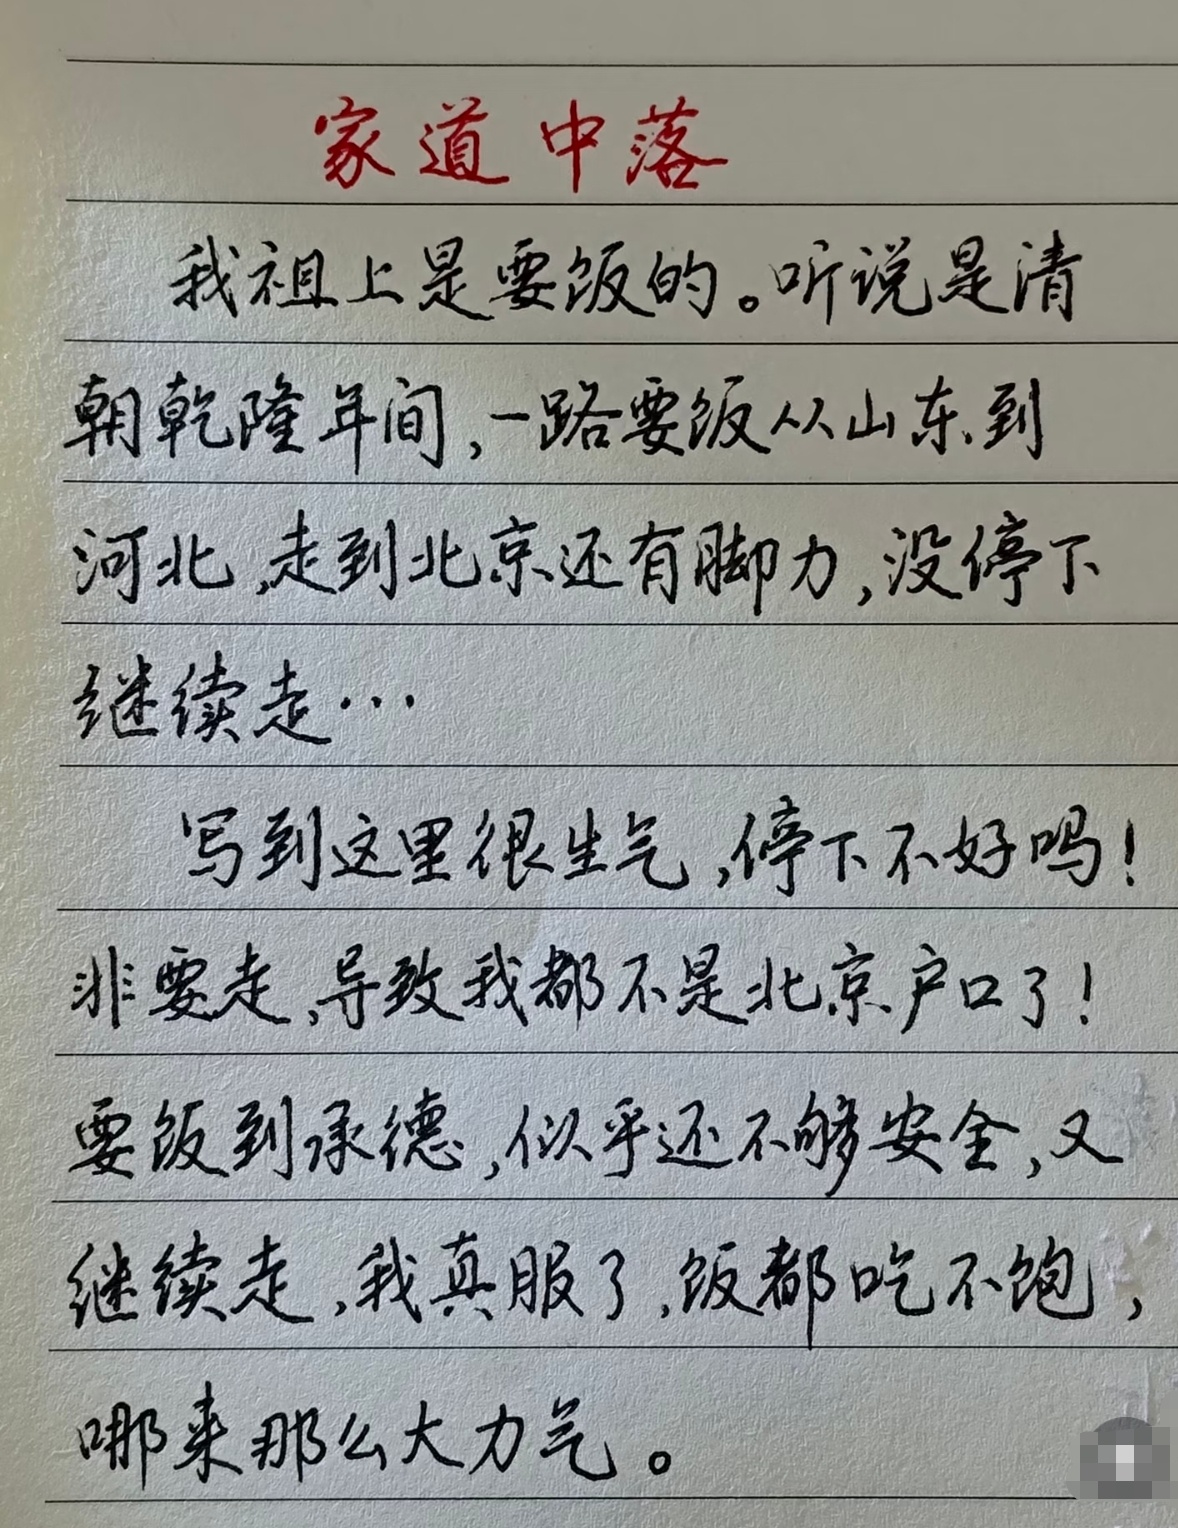 家道中落
我祖上是要饭的。听说是清
朝乾隆年间,一路要饭从山东到
河北,走到北京还有脚力,没停下
继续走…
写到这里很生气,停下不好吗!
非要走,导致我都不是北京户口了!
要饭到承德,似乎还不够安全,又
继续走,我真服了,饭都吃不饱,
哪来那么大力气。